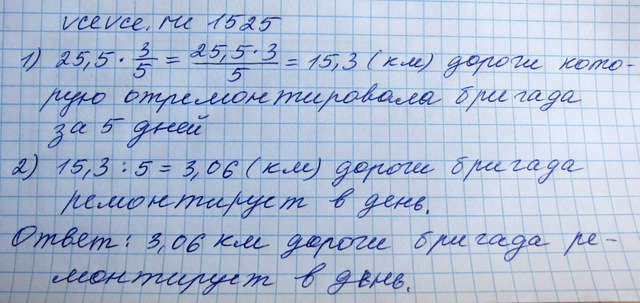 vcevce.ru 1525
1) 25,5 · 3/5 = 25,5 · 3/5 = 15,3 (км) дороги кото-
рую отремонтировала бригада
за 5 дней
2) 15,3 : 5 = 3,06 (км) дороги бригада
ремонтирует в день.
Ответ: 3,06 км дороги бригада ре-
монтирует в день.